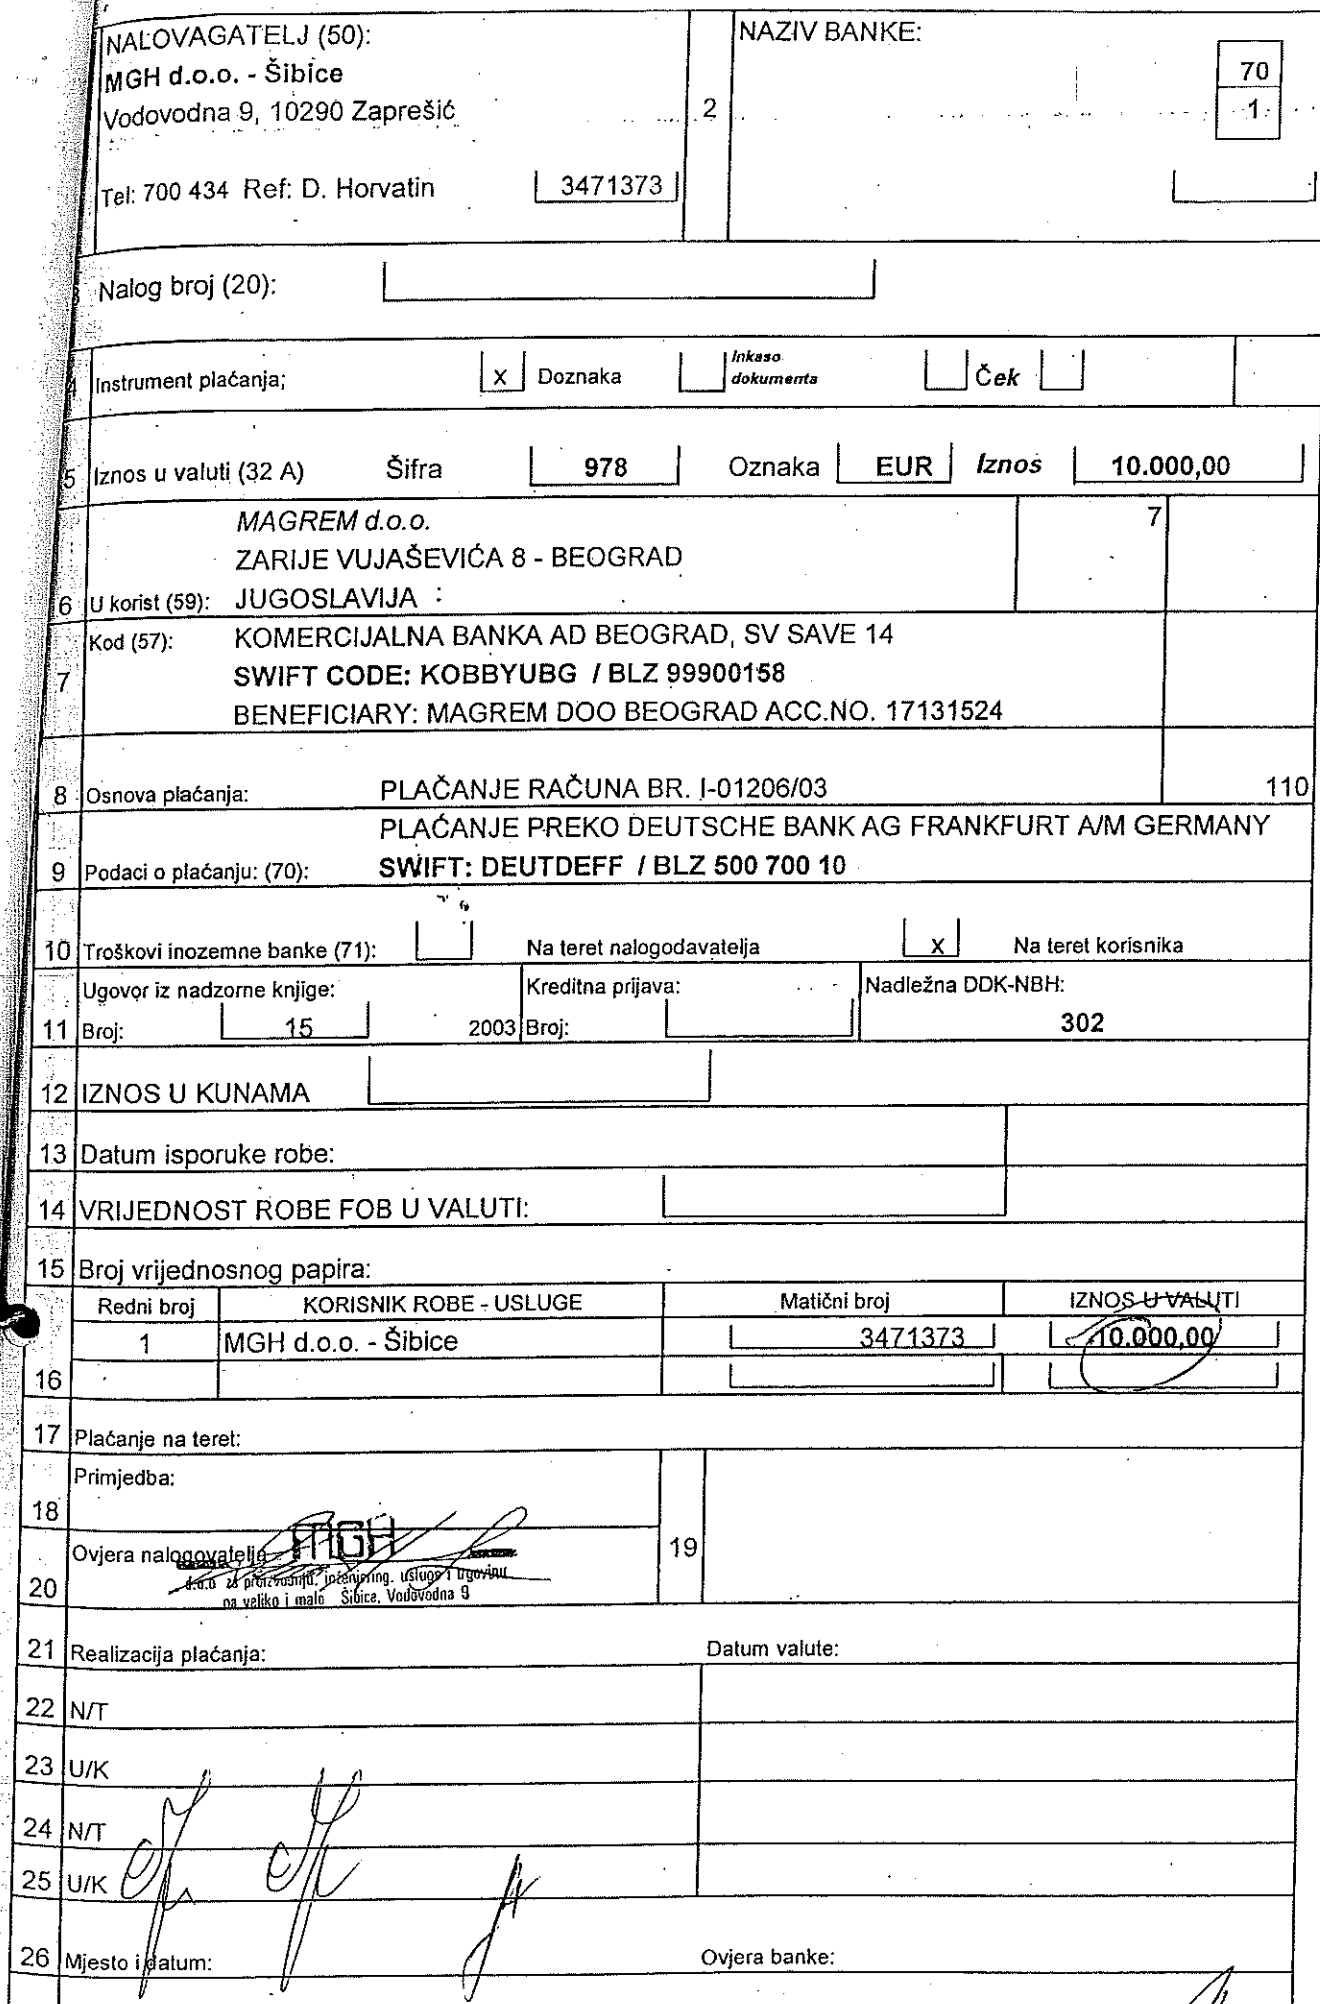 NALOVAGATELJ (50):
MGH d.o.o. - Šibice
Vodovodna 9, 10290 Zaprešić
Tel: 700 434 Ref: D. Horvatin 3471373
2
NAZIV BANKE:
70
1
Nalog broj (20):
4 Instrument plaćanja; x Doznaka Inkaso dokumenta Ček
5 Iznos u valuti (32 A) Šifra 978 Oznaka EUR Iznos 10.000,00
MAGREM d.o.o. 7
ZARIJE VUJAŠEVIĆA 8 - BEOGRAD
6 U korist (59): JUGOSLAVIJA :
Kod (57): KOMERCIJALNA BANKA AD BEOGRAD, SV SAVE 14
7 SWIFT CODE: KOBBYUBG / BLZ 99900158
BENEFICIARY: MAGREM DOO BEOGRAD ACC.NO. 17131524
8 Osnova plaćanja: PLAČANJE RAČUNA BR. I-01206/03 110
PLAĆANJE PREKO DEUTSCHE BANK AG FRANKFURT A/M GERMANY
9 Podaci o plaćanju: (70): SWIFT: DEUTDEFF / BLZ 500 700 10
10 Troškovi inozemne banke (71): Na teret nalogodavatelja x Na teret korisnika
Ugovor iz nadzorne knjige: Kreditna prijava: Nadležna DDK-NBH:
11 Broj: 15 2003 Broj: 302
12 IZNOS U KUNAMA
13 Datum isporuke robe:
14 VRIJEDNOST ROBE FOB U VALUTI:
15 Broj vrijednosnog papira:
Redni broj KORISNIK ROBE - USLUGE Matični broj IZNOS U VALUTI
1 MGH d.o.o. - Šibice 3471373 10.000,00
16
17 Plaćanje na teret:
Primjedba:
18
19
Ovjera nalogovatelja
MGH
20
d.o.o za proizvodnju, inženjering, usluge i trgovinu
na veliko i malo Šibice, Vodovodna 9
21 Realizacija plaćanja: Datum valute:
22 N/T
23 U/K
24 N/T
25 U/K
26 Mjesto i datum: Ovjera banke: